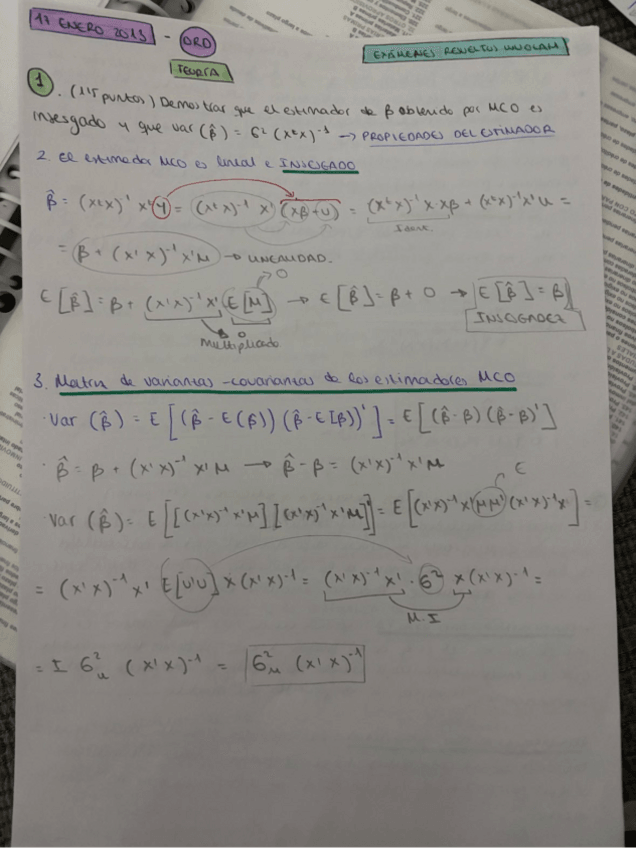 17 ENERO 2013 - ORD
EXÁMENES RESUELTOS
TEORÍA
1. (1'5 puntos) Demostrar que el estimador de β obtenido por MCO es
insesgado y que var(β̂) = σ²(x'x)⁻¹ → PROPIEDADES DEL ESTIMADOR
2. El estimador MCO es lineal e INSESGADO
β̂ = (x'x)⁻¹ x'Y = (x'x)⁻¹ x' (xβ+u) = (x'x)⁻¹ x'xβ + (x'x)⁻¹x'u =
= β + (x'x)⁻¹x'u → LINEALIDAD.
0
E[β̂] = β + (x'x)⁻¹x' E[u] → E[β̂] = β + 0 → E[β̂] = β
INSESGADEZ
Multiplicado
3. Matriz de varianzas-covarianzas de los estimadores MCO
· Var(β̂) = E[(β̂ - E(β̂))(β̂ - E[β̂])'] = E[(β̂-β)(β̂-β)']
· β̂ = β + (x'x)⁻¹x'u → β̂-β = (x'x)⁻¹x'u
E
Var(β̂) = E[[(x'x)⁻¹x'u][(x'x)⁻¹x'u]'] = E[(x'x)⁻¹x'uu'(x'x)⁻¹x] =
= (x'x)⁻¹x' E[u'u] x(x'x)⁻¹ = (x'x)⁻¹x' · σ² x(x'x)⁻¹ =
M.I
= I σ²ᵤ (x'x)⁻¹ = σ²ᵤ (x'x)⁻¹